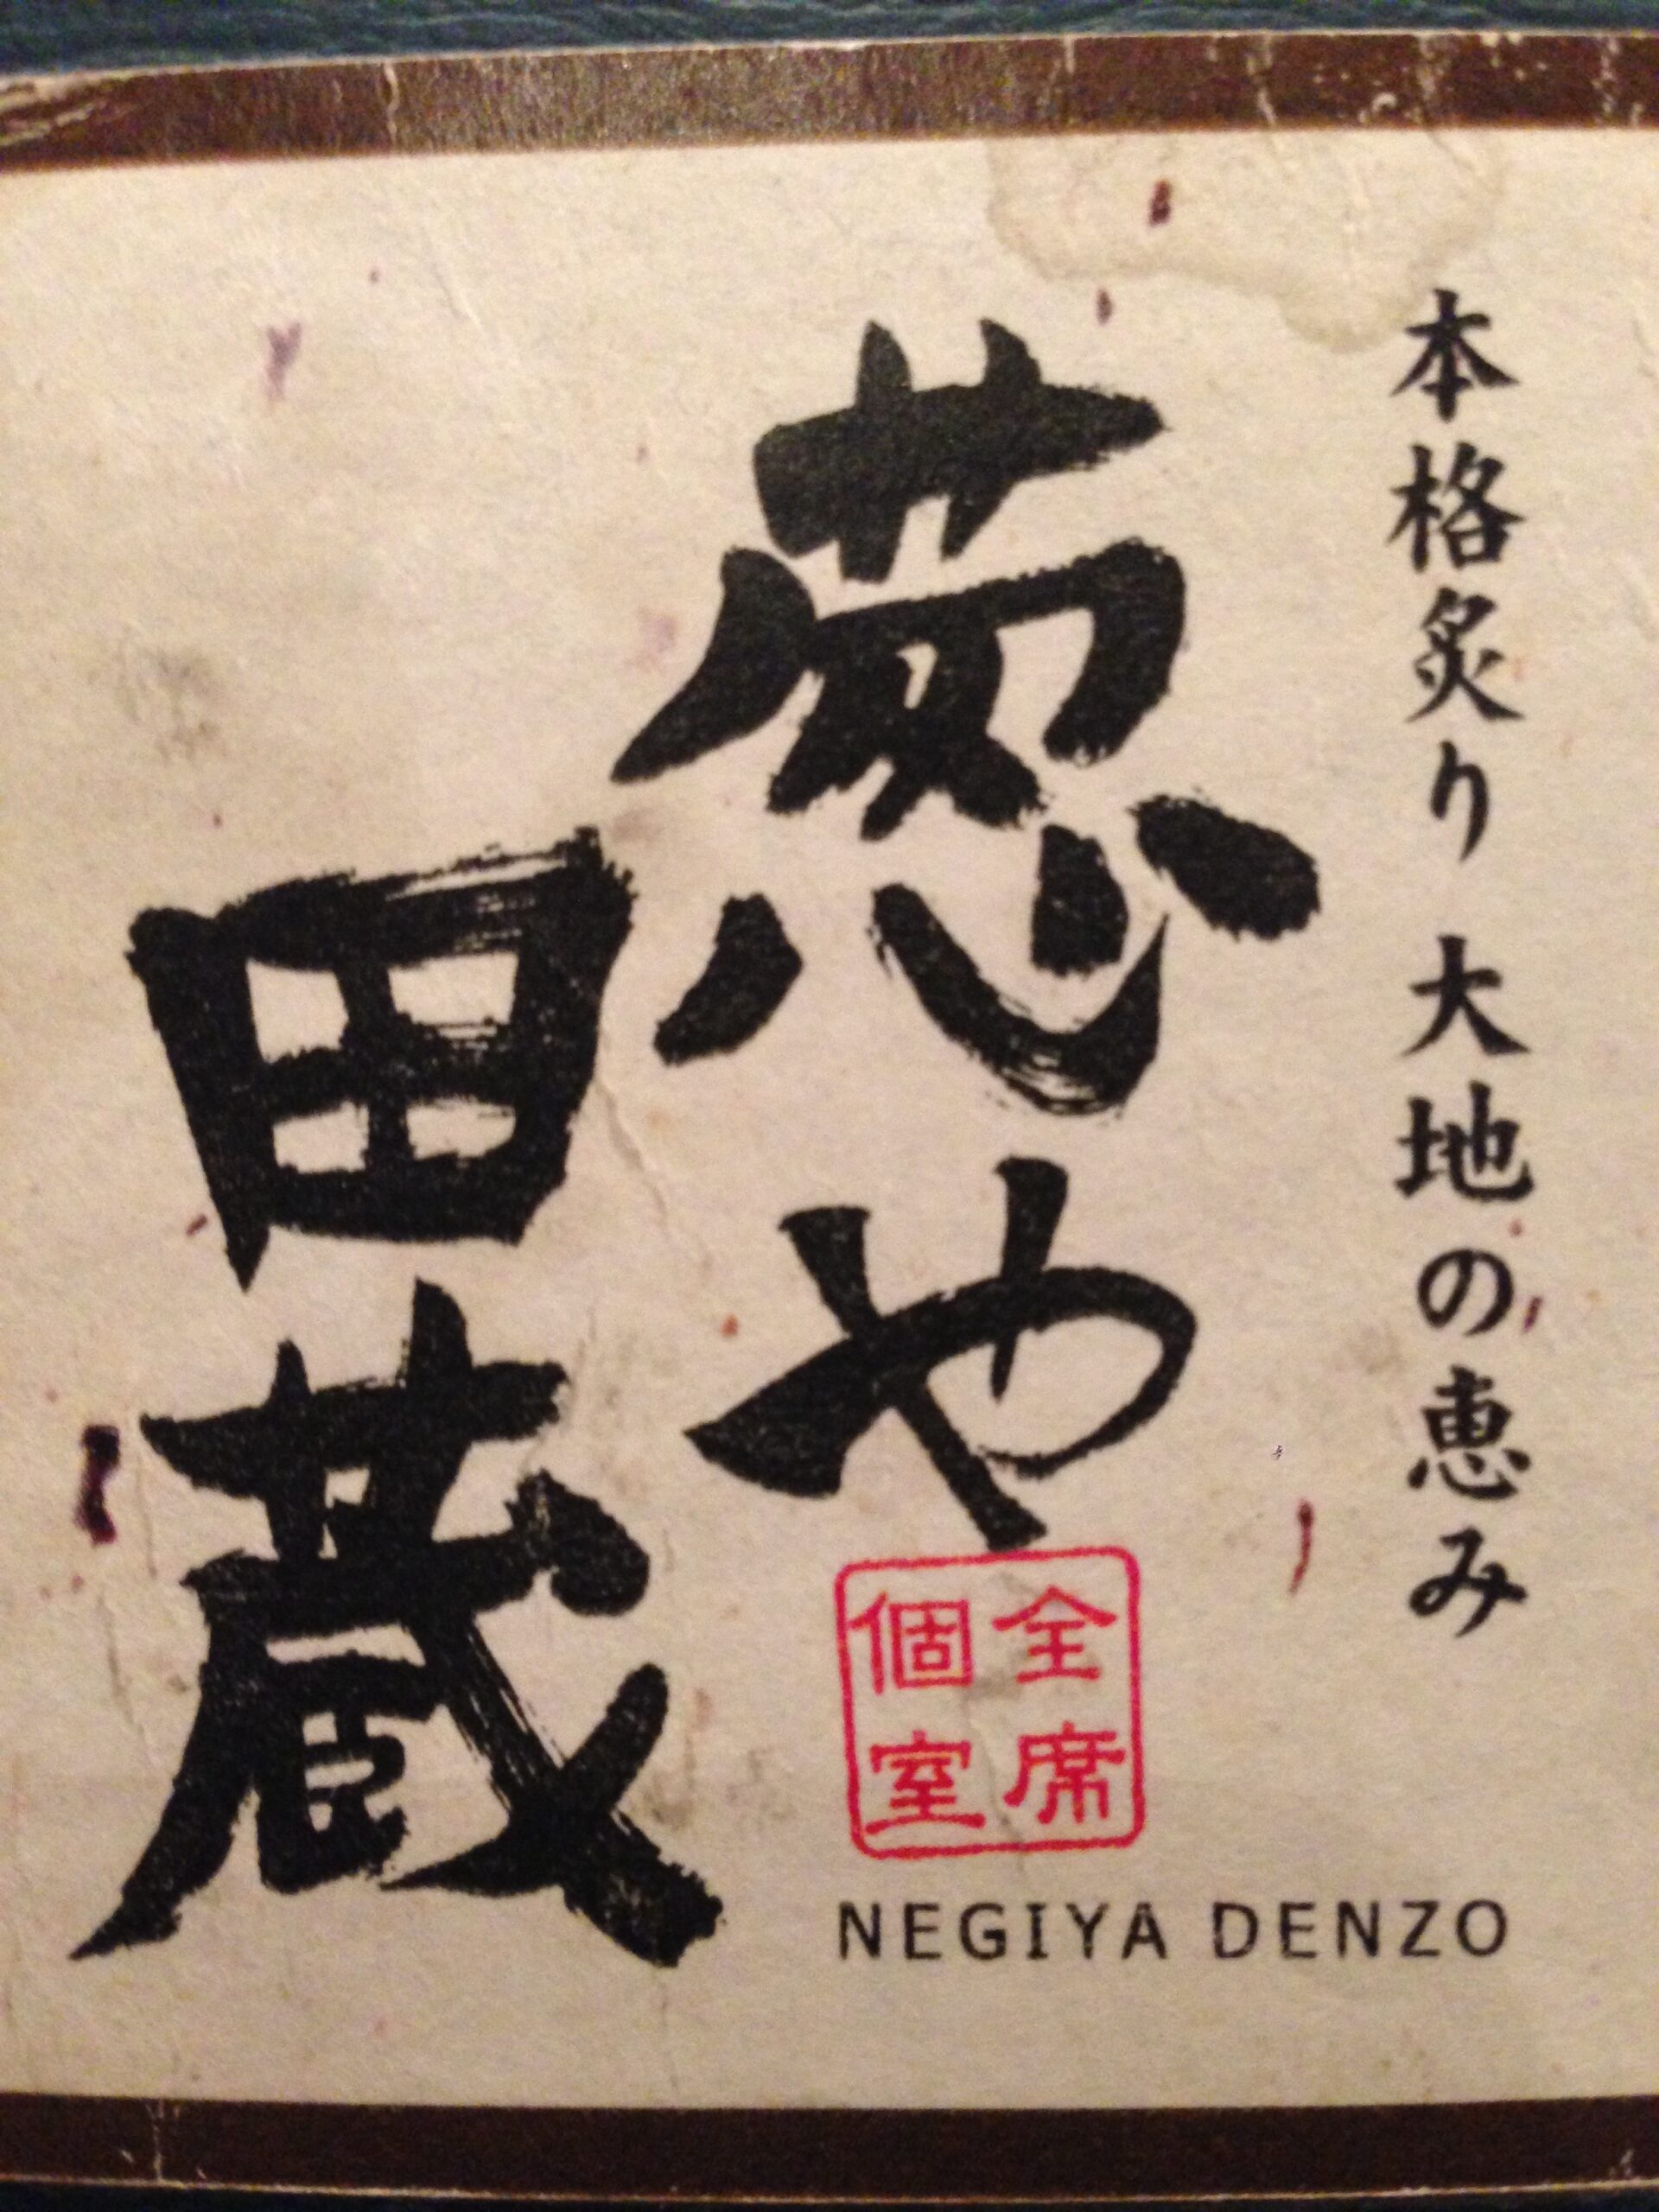 本格炙り 大地の恵み
葱や
田蔵
全席
個室
NEGIYA DENZO